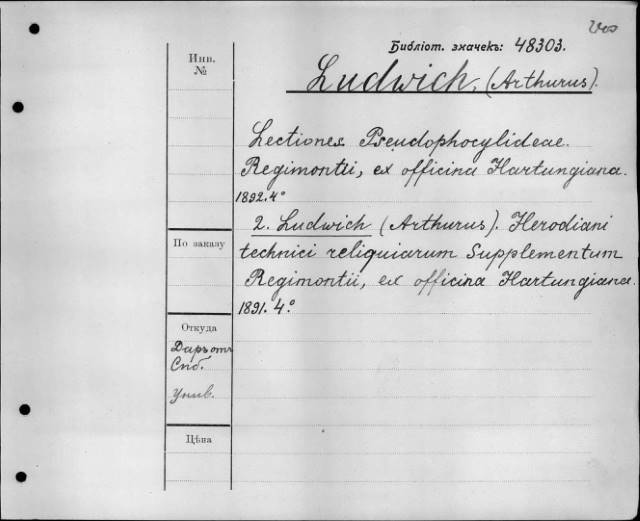 Библіот. значекъ: 48303.
Инв.
№
Ludwich, (Arthurus).
Lectiones Pseudophocylideae.
Regimontii, ex officina Hartungiana.
1892. 4°
2. Ludwich (Arthurus). Herodiani
По заказу
technici reliquiarum Supplementum
Regimontii, ex officina Hartungiana.
1891. 4°.
Откуда
Даръ отъ
Спб.
Унив.
Цѣна